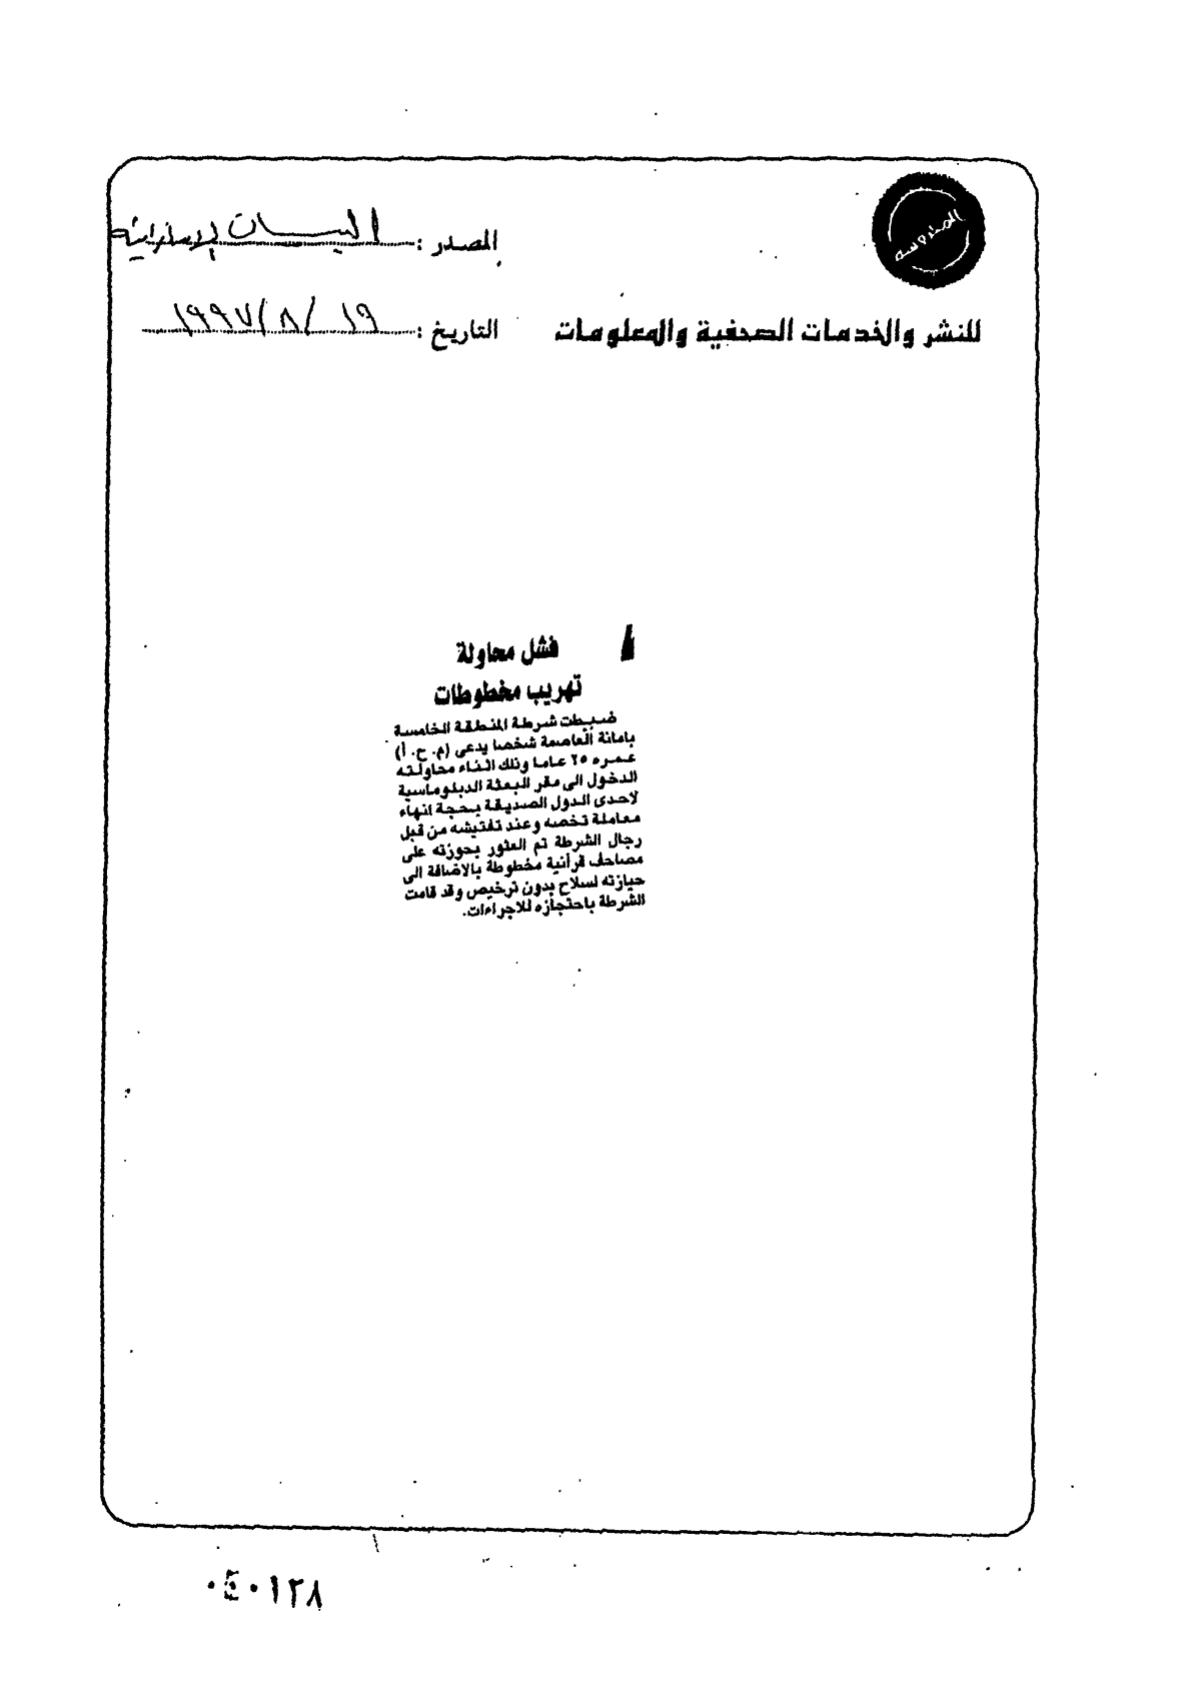 المصدر :
التاريخ : ١٩ / ٨ / ١٩٩٧
للنشر والخدمات الصحفية والمعلومات
فشل محاولة
تهريب مخطوطات
ضبطت شرطة المنطقة الخامسة
بامانة العاصمة شخصا يدعى (م. ح. أ)
عمره ٢٥ عاما وذلك اثناء محاولته
الدخول الى مقر البعثة الدبلوماسية
لاحدى الدول الصديقة بحجة انهاء
معاملة تخصه وعند تفتيشه من قبل
رجال الشرطة تم العثور بحوزته على
مصاحف قرآنية مخطوطة بالاضافة الى
حيازته لسلاح بدون ترخيص وقد قامت
الشرطة باحتجازه للاجراءات.